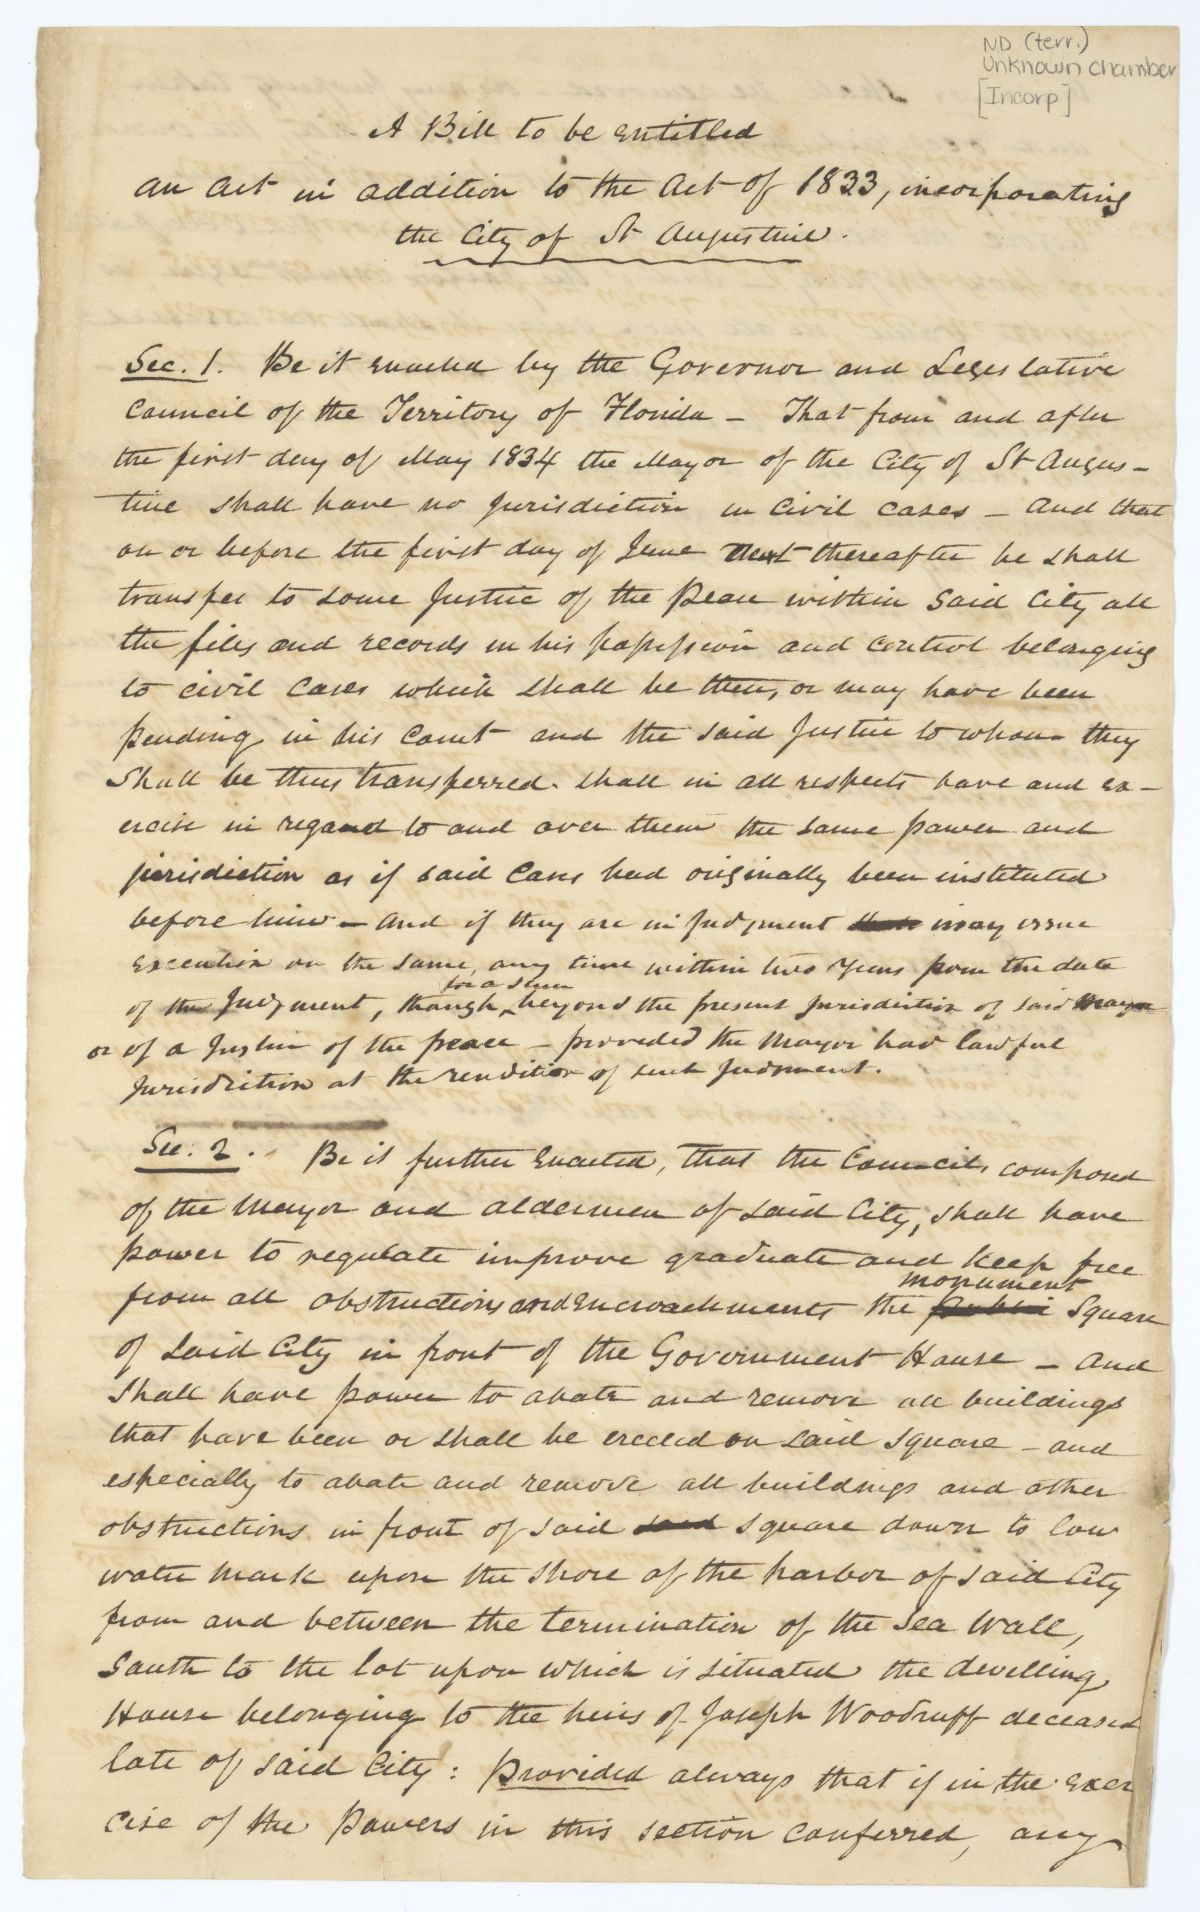 ND (terr.)
Unknown Chamber
[Incorp]
A Bill to be entitled
an act in addition to the Act of 1833, incorporating
the City of St Augustine.
Sec. 1. Be it enacted by the Governor and Legislative
Council of the Territory of Florida – That from and after
the first day of May 1834 the Mayor of the City of St Augus-
tine shall have no Jurisdiction in Civil cases – And that
on or before the first day of June next thereafter he shall
transfer to some Justice of the Peace within said City all
the files and records in his possession and control belonging
to civil cases which shall be then, or may have been
pending in his Court and the said Justice to whom they
shall be thus transferred shall in all respects have and ex-
ercise in regard to and over them the same power and
jurisdiction as if said Cases had originally been instituted
before him – And if they are in Judgment may issue
execution on the same, any time within two years from the date
for a sum
of the Judgment, though beyond the present Jurisdiction of said Mayor
or of a Justice of the peace – provided the Mayor had lawful
Jurisdiction at the rendition of such Judgment.
Sec. 2. Be it further Enacted, that the Council, composed
of the Mayor and aldermen of said City, shall have
power to regulate improve graduate and keep free
monument
from all obstructions and Encroachments the public Square
of said City in front of the Government House – And
shall have power to abate and remove all buildings
that have been or shall be erected on said Square – and
especially to abate and remove all buildings and other
obstructions in front of said said square down to low
water mark upon the shore of the harbor of said City
from and between the termination of the Sea Wall,
South to the lot upon which is situated the dwelling
House belonging to the heirs of Joseph Woodruff deceased
late of said City: Provided always that if in the exer
cise of the Powers in this section conferred, any